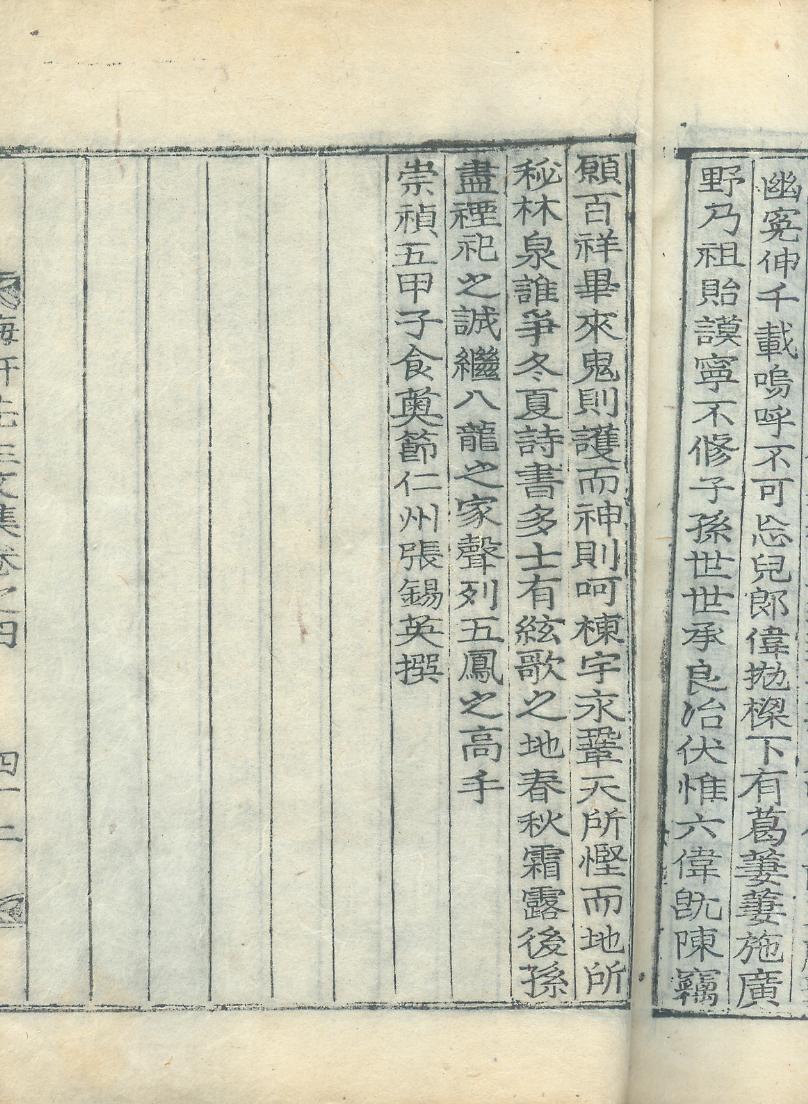 幽寃伸千載嗚呼不可忘兒郎偉抛樑下有葛萋萋施廣
野乃祖貽謨寧不修子孫世世承良冶伏惟六偉旣陳竊
願百祥畢來鬼則護而神則呵棟宇永鞏天所慳而地所
秘林泉誰爭冬夏詩書多士有絃歌之地春秋霜露後孫
盡禋祀之誠繼八龍之家聲列五鳳之高手
崇禎五甲子食薁節仁州張錫英撰
海軒先生文集卷之四 四十二